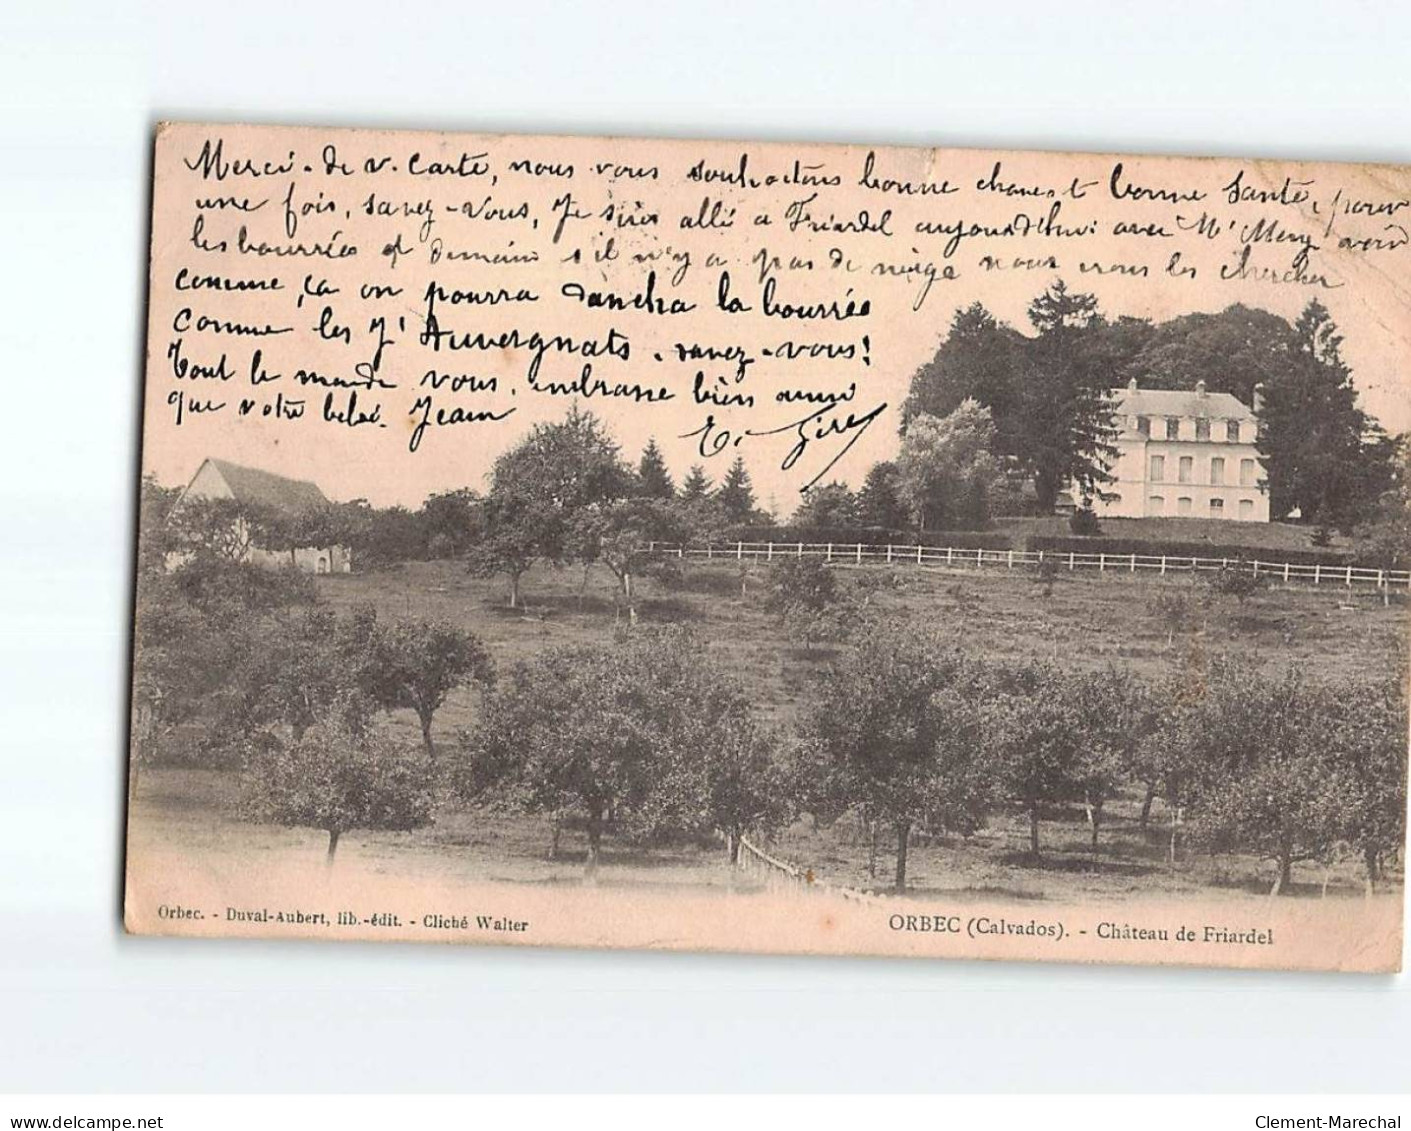 Merci de v. Carte, nous vous souhaitons bonne chance et bonne Santé, pour
une fois, savez-vous, Je suis allé a Friardel aujourd'hui avec Mr
les bourrées et demain s'il n'y a pas de neige nous irons les chercher
comme ça on pourra dancha la bourrée
comme les J' Auvergnats, savez-vous!
Tout le monde vous embrasse bien ainsi
que votre bébé. Jean
Orbec. - Duval-Aubert, lib.-édit. - Cliché Walter
ORBEC (Calvados). - Château de Friardel
delcampe.net
Clement-Marechal